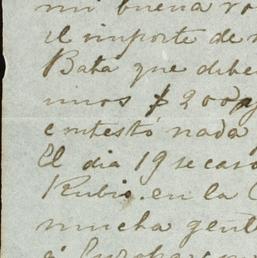 mi buena vo
el importe de
Bata que debe
unos $200
contestó nada
El dia 19 se cas
Rubio. en la C
mucha gent
á Europa